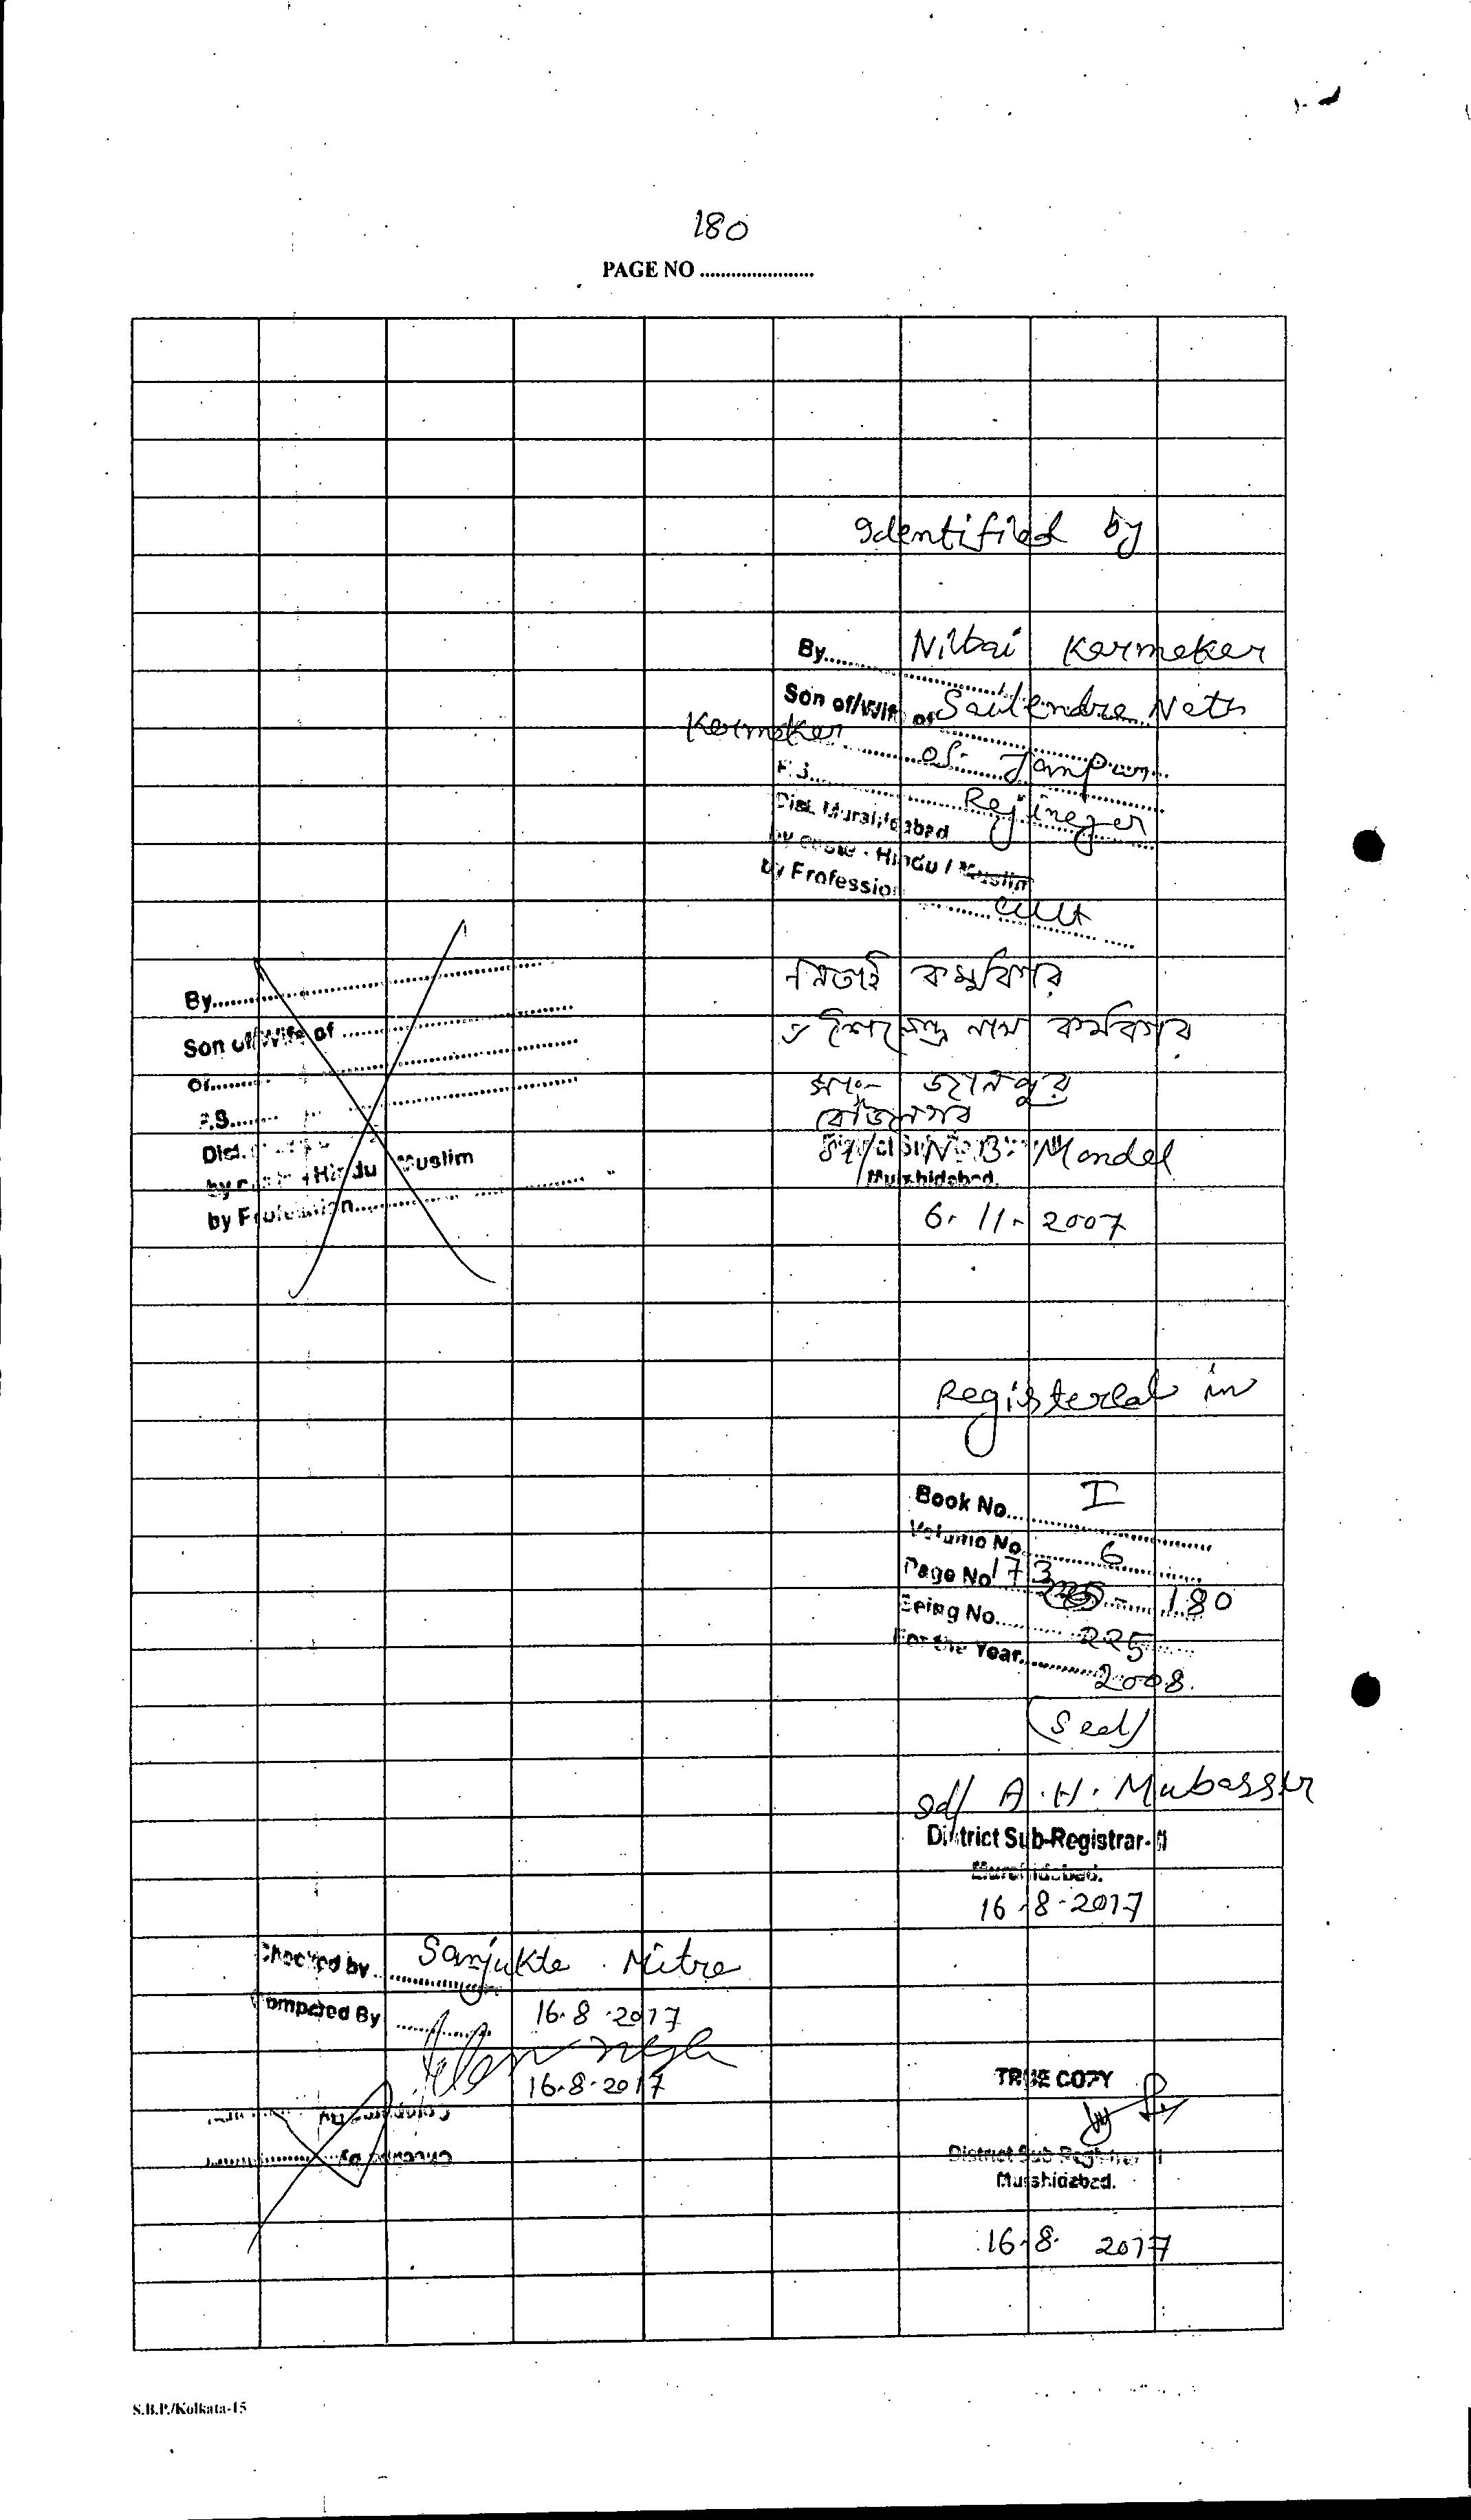 180
PAGE NO ......................
Identified by
By...... Nitai Karmakar
Son of/Wife of Sailendra Nath
Karmakar of- Janpur
P.S. Rejinagar
Dist. Murshidabad
by caste - Hindu / Muslim
by Profession Cult
নিতাই কর্ম্মকার
শৈলেন্দ্র নাথ কর্মকার
সাং- জানপুর
রেজিনগর
Sd/ N. B. Mondal
Murshidabad.
6. 11. 2007
By..............
Son of/Wife of ..............
Of..............
P.S..............
Dist.
by caste - Hindu Muslim
by Profession..............
Registered in
Book No. I
Volume No. 6
Page No 173 - 180
Being No. 225
For the Year 2008.
(Seal)
Sd/ A. H. Mubasser
District Sub-Registrar-II
Murshidabad.
16-8-2017
Checked by Sanjukta Mitra
16.8.2017
Compared By
16.8.2017
Compared By
Checked by
TRUE COPY
District Sub Registrar II
Murshidabad.
16-8. 2017
S.B.P./Kolkata-15